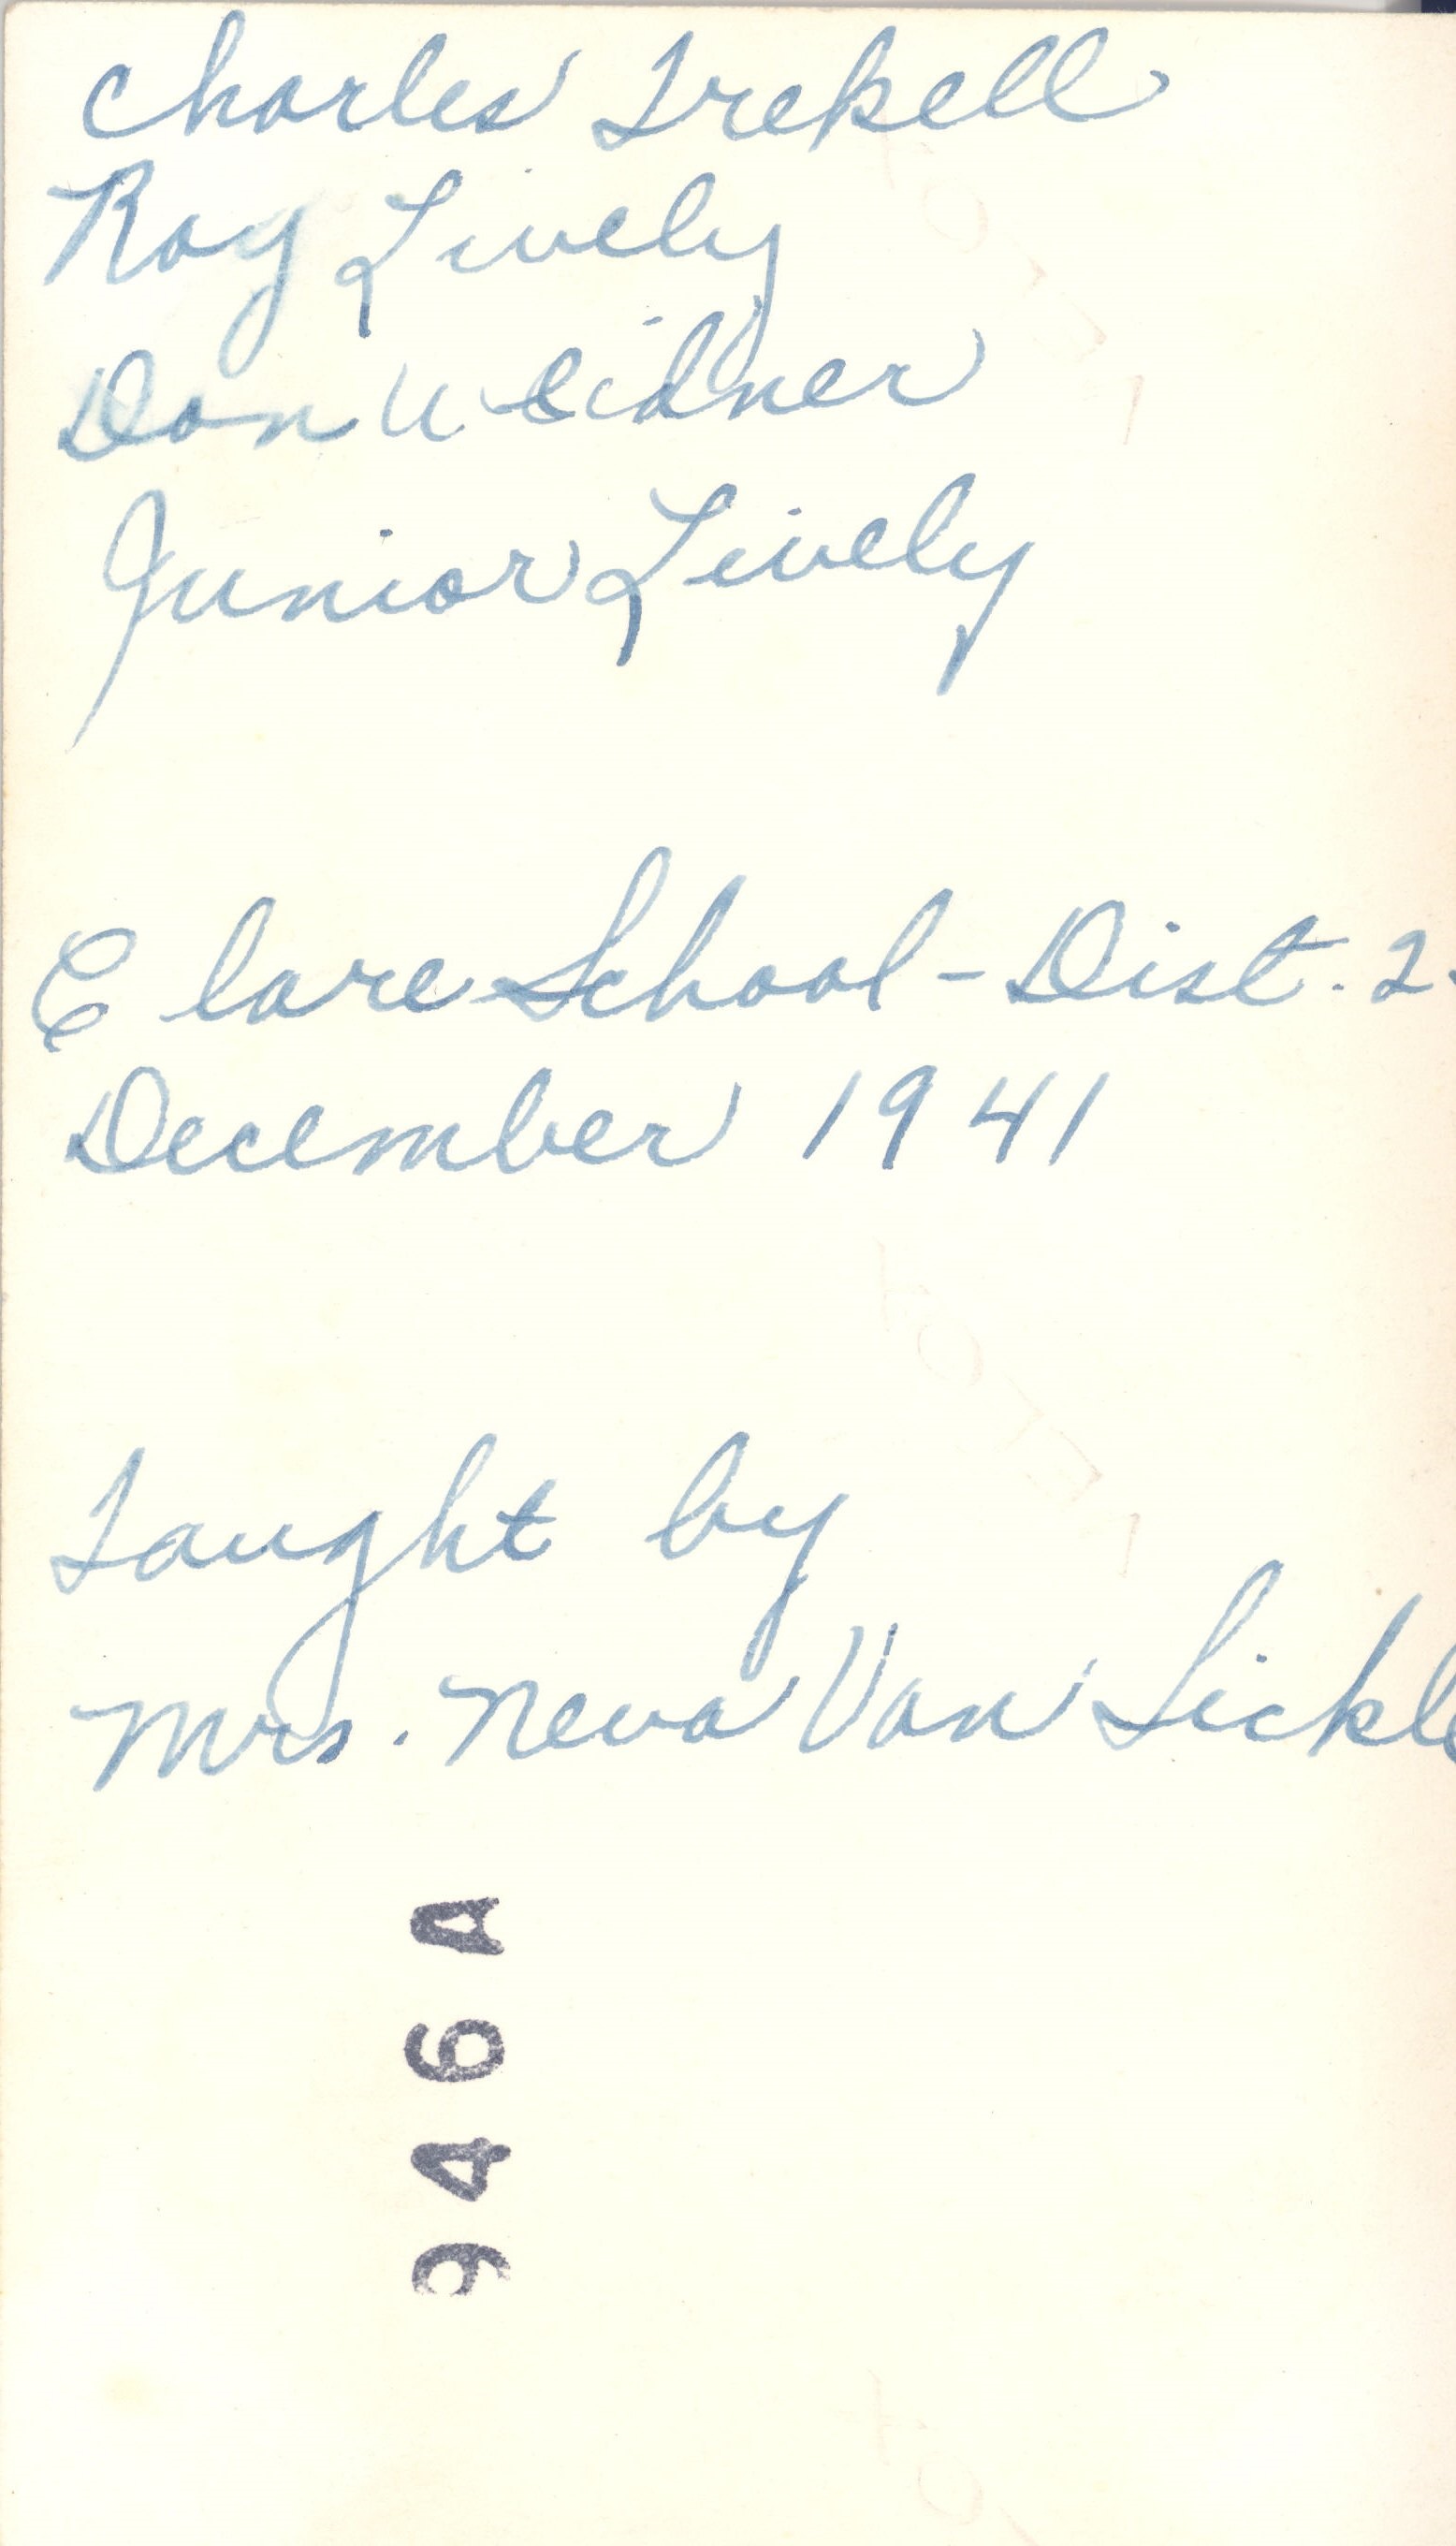 Charles Trekell
Roy Lively
Don Weidner
Junior Lively
Clare School - Dist. 2
December 1941
Taught by
Mrs. Neva Van Sickle
946A